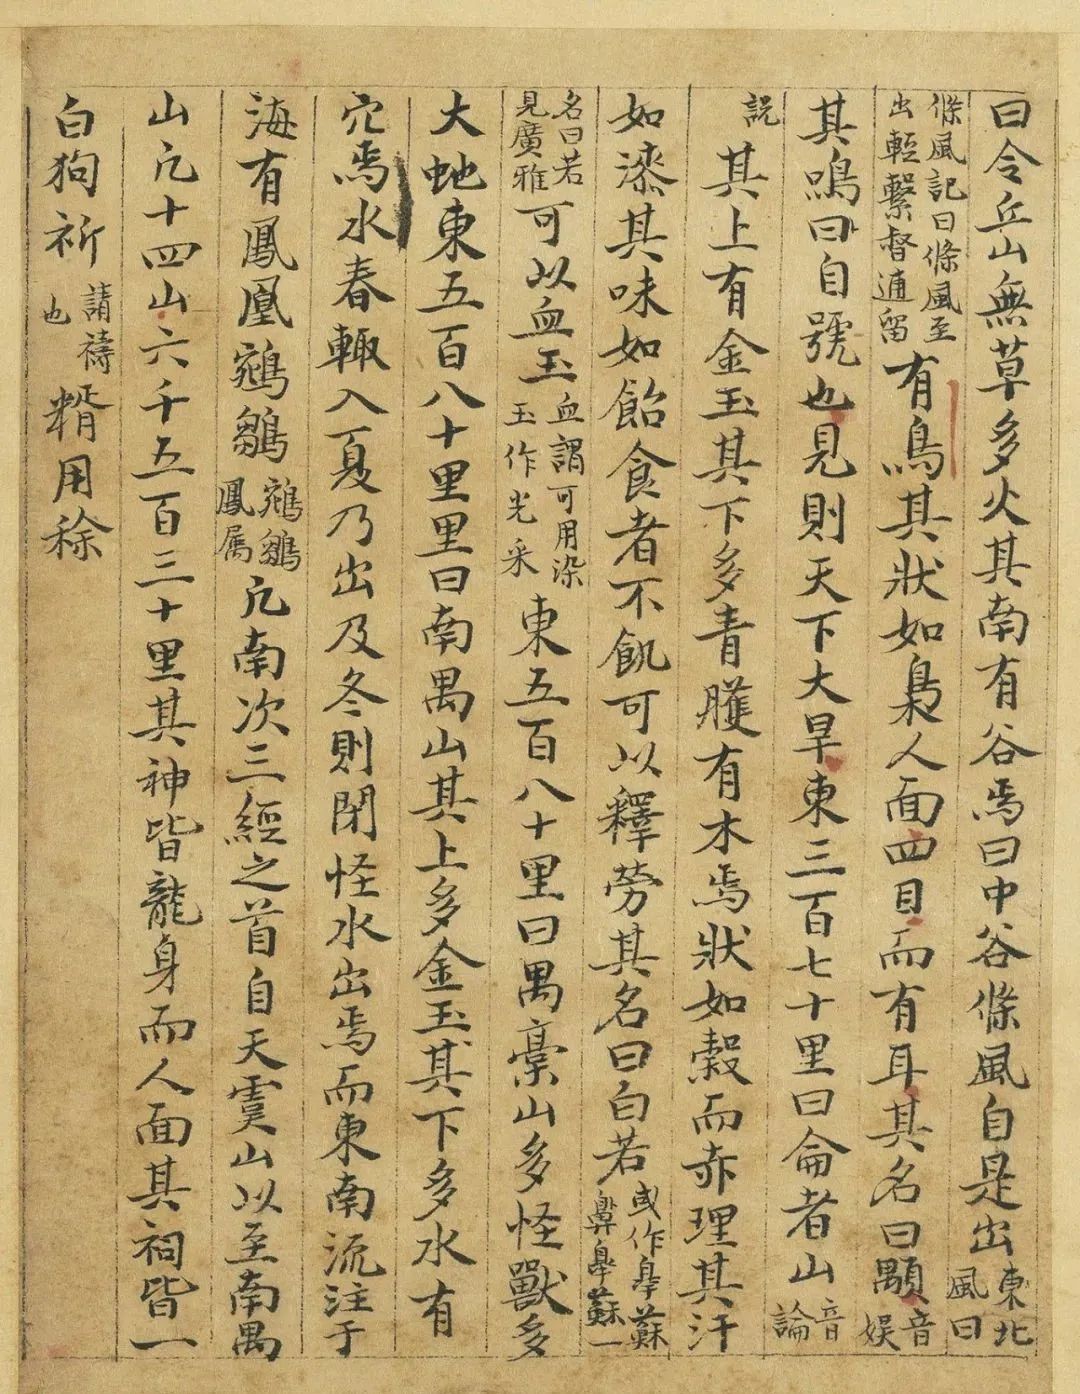 曰令丘山無草多火其南有谷焉曰中谷條風自是出東北風曰
條風記曰條風至出輕繫督逋留有鳥其狀如梟人面四目而有耳其名曰顒音娱
其鳴曰自號也見則天下大旱東三百七十里曰侖者山音論
説其上有金玉其下多青雘有木焉狀如榖而赤理其汗
如漆其味如飴食者不飢可以釋勞其名曰白若或作睾蘇睾蘇一
名曰若見廣雅可以血玉血謂可用染玉作光采東五百八十里曰禺稾山多怪獸多
大虵東五百八十里里曰南禺山其上多金玉其下多水有
穴焉水春輙入夏乃出及冬則閉怪水出焉而東南流注于
海有鳳凰鵷鶵鵷鶵鳳属凢南次三經之首自天虞山以至南禺
山凢十四山六千五百三十里其神皆龍身而人面其祠皆一
白狗祈請禱也糈用稌